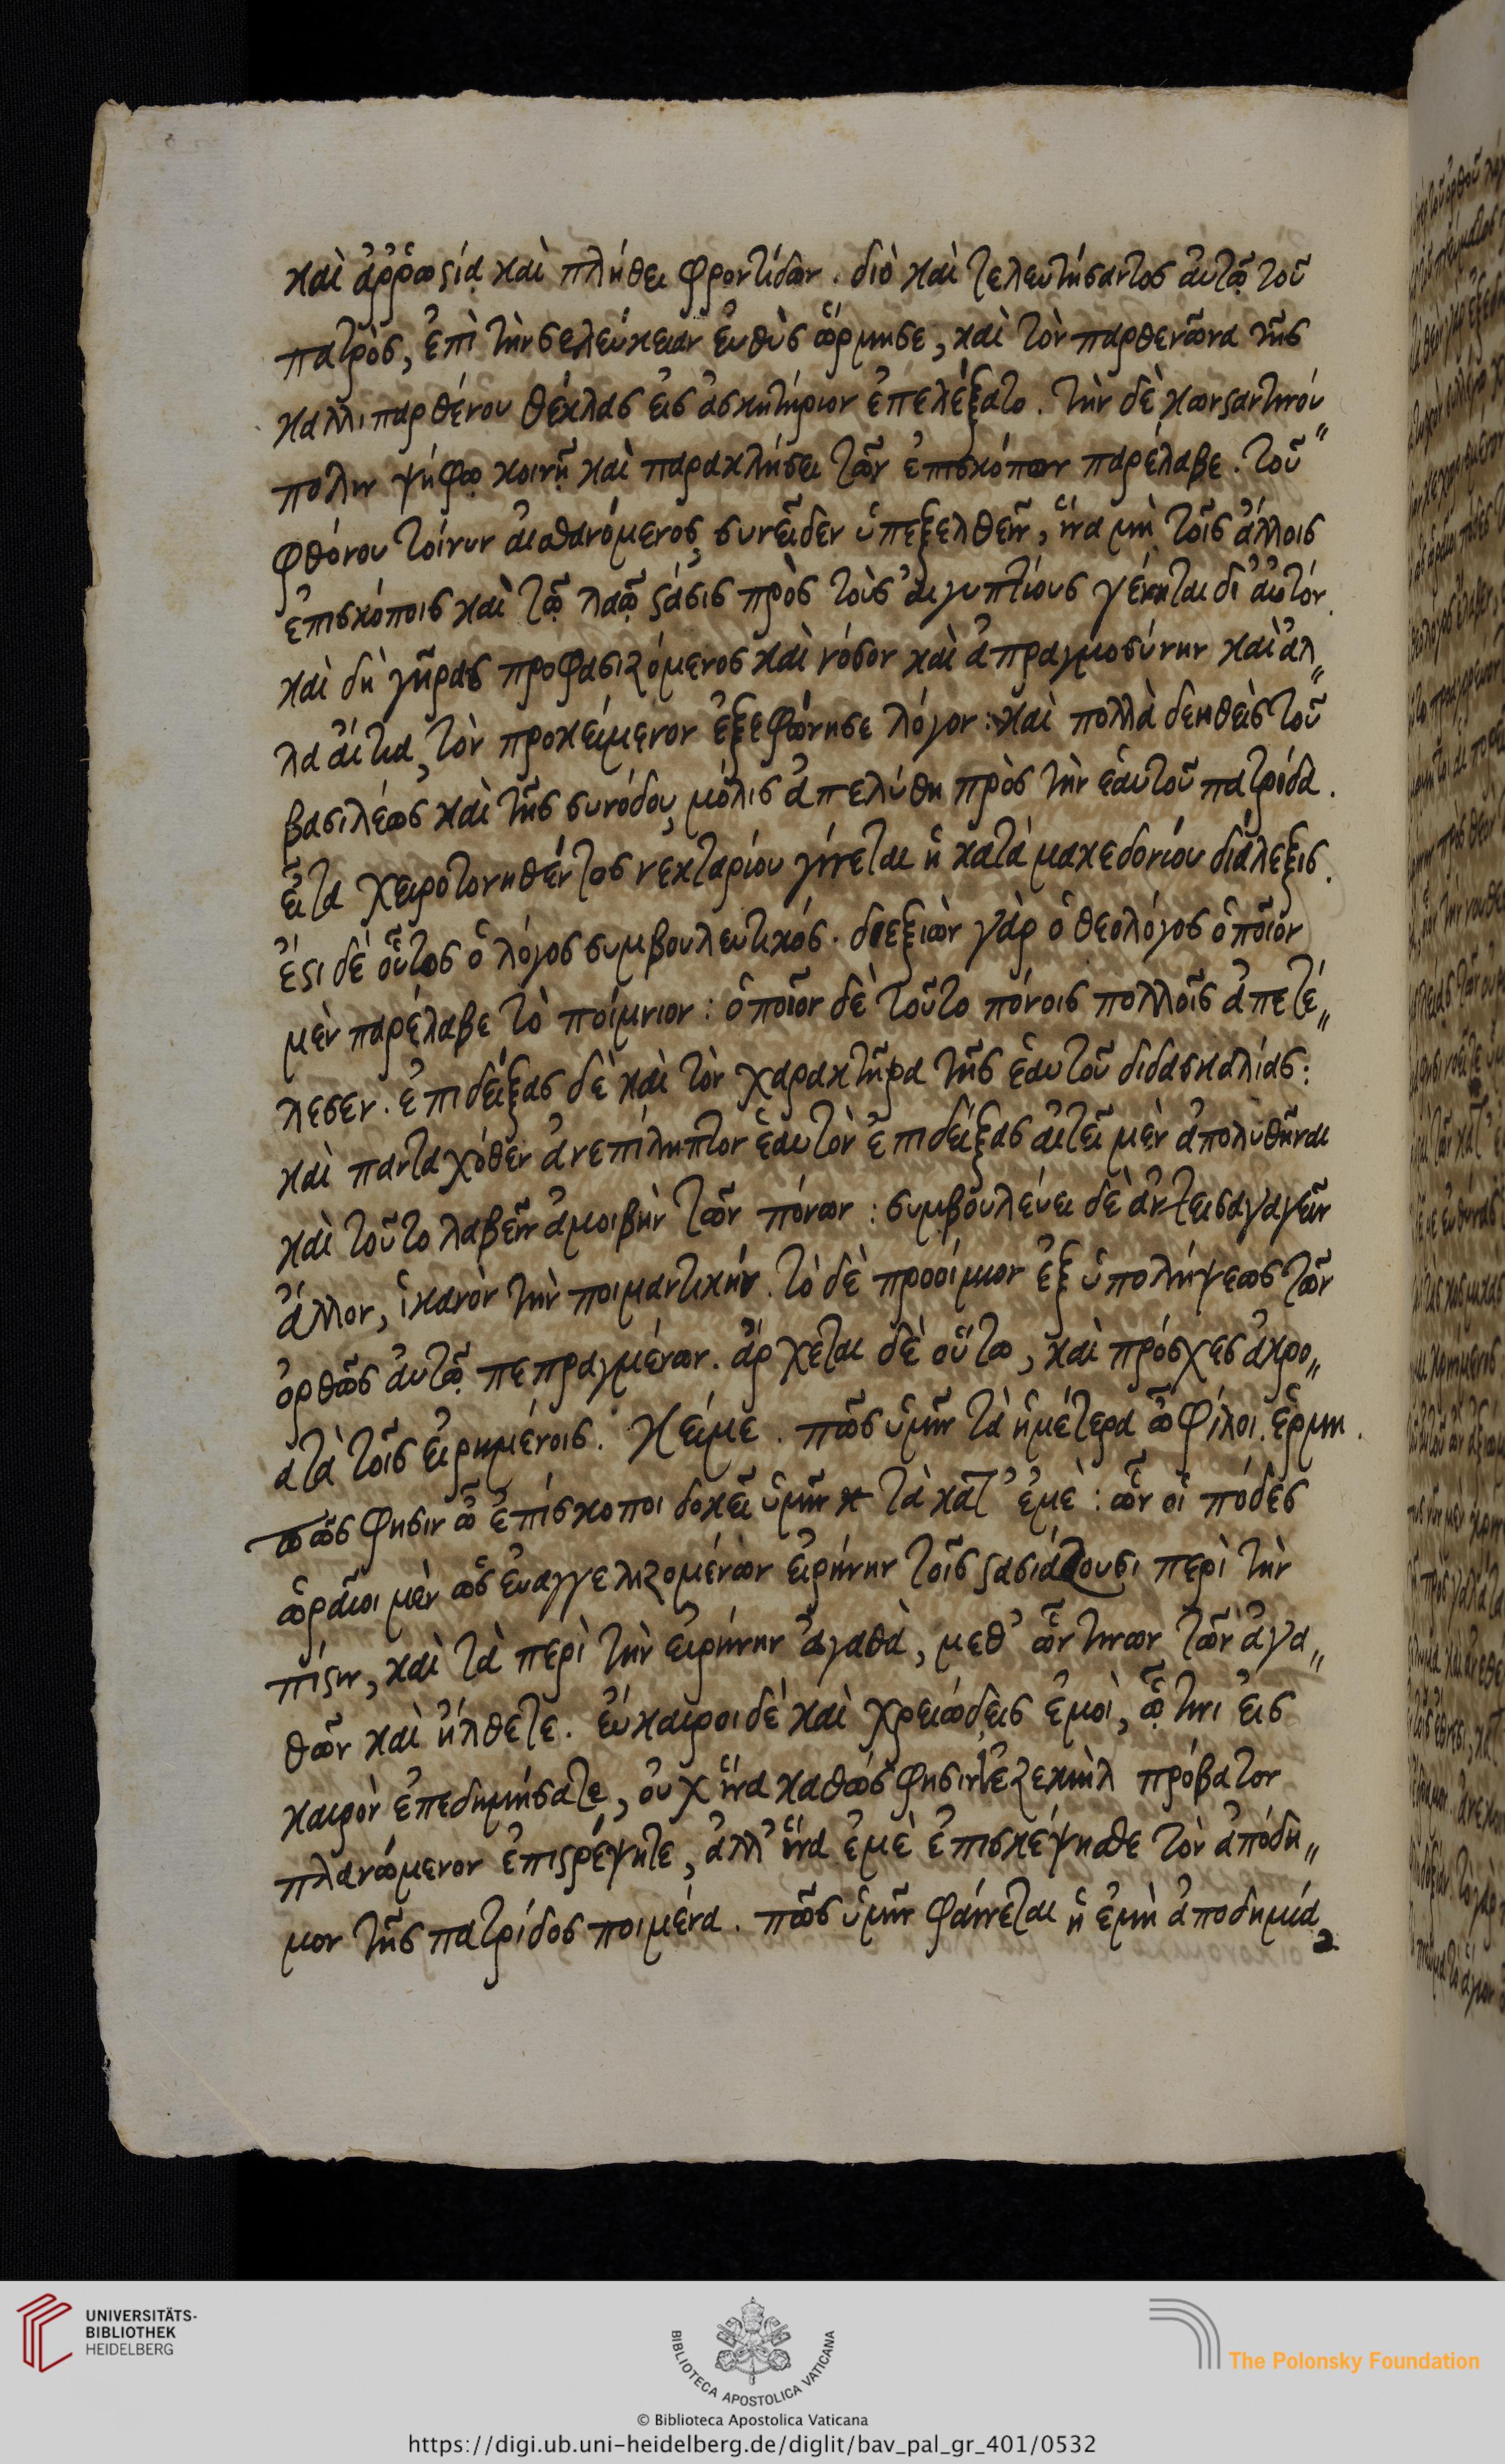 καὶ ἀῤῥωστίᾳ καὶ πλήθει φροντίδων. διὸ καὶ τελευτήσαντος αὐτῶ τοῦ
πατρὸς, ἐπὶ τὴν σελεύκειαν εὐθὺς ὥρμησε, καὶ τὸν παρθενῶνα τῆς
καλλιπαρθένου θέκλας εἰς ἀσκητήριον ἐπελέξατο. τὴν δὲ κωνσαντινού"
πολιν ψήφῳ κοινῇ καὶ παρακλήσει τῶν ἐπισκόπων παρέλαβε. τοῦ
φθόνου τοίνυν αἰσθανόμενος, συνεῖδεν ὑπεξελθεῖν, ἵνα μὴ τοῖς ἄλλοις
ἐπισκόποις καὶ τῷ λαῷ στάσις πρὸς τοὺς αἰγυπτίους γένηται δι' αὐτόν.
καὶ δὴ γῆρας προφασιζόμενος καὶ νόσον καὶ ἀπραγμοσύνην καὶ ἀλ"
λα αἴτια, τὸν προκείμενον ἐξεφώνησε λόγον: καὶ πολλὰ δεηθεὶς τοῦ
βασιλέως καὶ τῆς συνόδου, μόλις ἀπελύθη πρὸς τὴν ἑαυτοῦ πατρίδα.
εἶτα χειροτονηθέντος νεκταρίου γίνεται ἡ κατὰ μακεδονίου διάλεξις.
ἔστι δὲ οὗτος ὁ λόγος συμβουλευτικός. διεξιὼν γὰρ ὁ θεολόγος ὁποῖον
μὲν παρέλαβε τὸ ποίμνιον: ὁποῖον δὲ τοῦτο πόνοις πολλοῖς ἀπετέ"
λεσεν. ἐπιδείξας δὲ καὶ τὸν χαρακτῆρα τῆς ἑαυτοῦ διδασκαλίας:
καὶ πανταχόθεν ἀνεπίληπτον ἑαυτὸν ἐπιδείξας αἰτεῖ μὲν ἀπολυθῆναι
καὶ τοῦτο λαβεῖν ἀμοιβὴν τῶν πόνων: συμβουλεύει δὲ ἀντεισαγαγεῖν
ἄλλον, ἱκανὸν τὴν ποιμαντικήν. τὸ δὲ προοίμιον ἐξ ὑπολήψεως τῶν
ὀρθῶς αὐτῷ πεπραγμένων. ἄρχεται δὲ οὕτω, καὶ πρόσχες ἀκρο"
ατὰ τοῖς εἰρημένοις. Κείμε. πῶς ὑμῖν τὰ ἡμέτερα ὦ φίλοι. ἑρμη.
πῶς φησιν ὦ ἐπίσκοποι δοκεῖ ὑμῖν τὰ κατ' ἐμὲ: ὧν οἱ πόδες
ὡραῖοι μὲν ὡς εὐαγγελιζομένων εἰρήνην τοῖς στασιάζουσι περὶ τὴν
πίστιν, καὶ τὰ περὶ τὴν εἰρήνην ἀγαθὰ, μεθ' ὧν τινων τῶν ἀγα"
θῶν καὶ ἤλθετε. εὔκαιροι δὲ καὶ χρειώδεις ἐμοὶ, ᾧ τινι εἰς
καιρὸν ἐπεδημήσατε, οὐχ ἵνα καθώς φησιν ἰεζεκιὴλ πρόβατον
πλανώμενον ἐπιστρέψητε, ἀλλ' ἵνα ἐμὲ ἐπισκέψησθε τὸν ἀπόδη"
μον τῆς πατρίδος ποιμένα. πῶς ὑμῖν φαίνεται ἡ ἐμὴ ἀποδημία
UNIVERSITÄTS-
BIBLIOTHEK
HEIDELBERG
BIBLIOTECA APOSTOLICA VATICANA
The Polonsky Foundation
© Biblioteca Apostolica Vaticana
https://digi.ub.uni-heidelberg.de/diglit/bav_pal_gr_401/0532